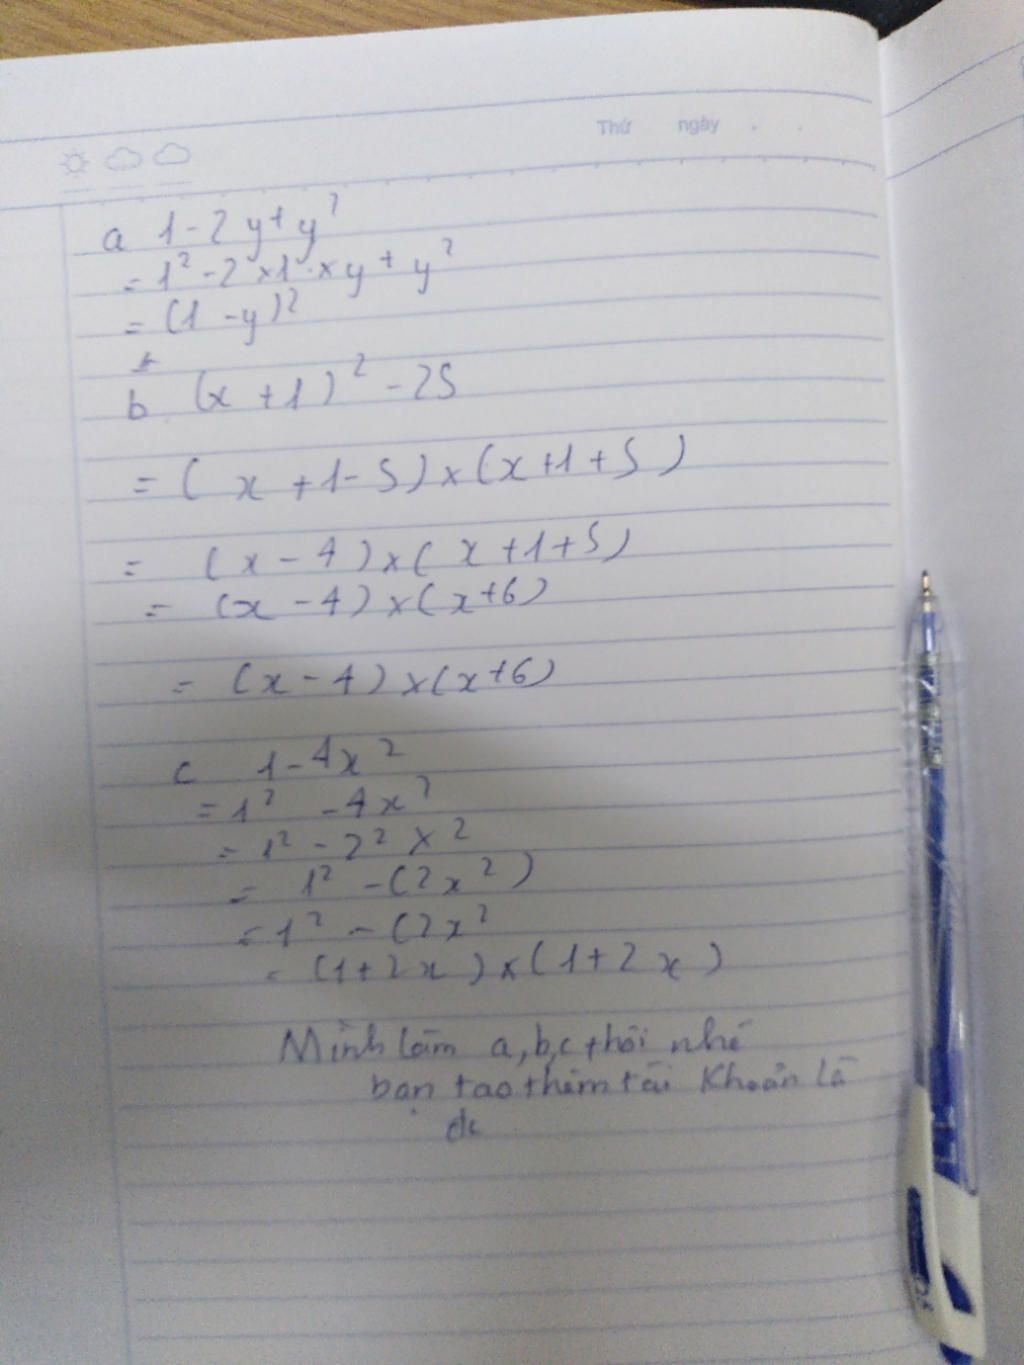 Thứ ngày . .
a 1 - 2y + y²
= 1² - 2 × 1 · × y + y²
= (1 - y)²
b (x + 1)² - 25
= (x + 1 - 5) × (x + 1 + 5)
= (x - 4) × (x + 1 + 5)
= (x - 4) × (x + 6)
= (x - 4) × (x + 6)
c 1 - 4x²
= 1² - 4x²
= 1² - 2² x²
= 1² - (2x²)
= 1² - (2x²
= (1 + 2x) × (1 + 2x)
Mình làm a, b, c thôi nhé
bạn tạo thêm tài khoản là
đc